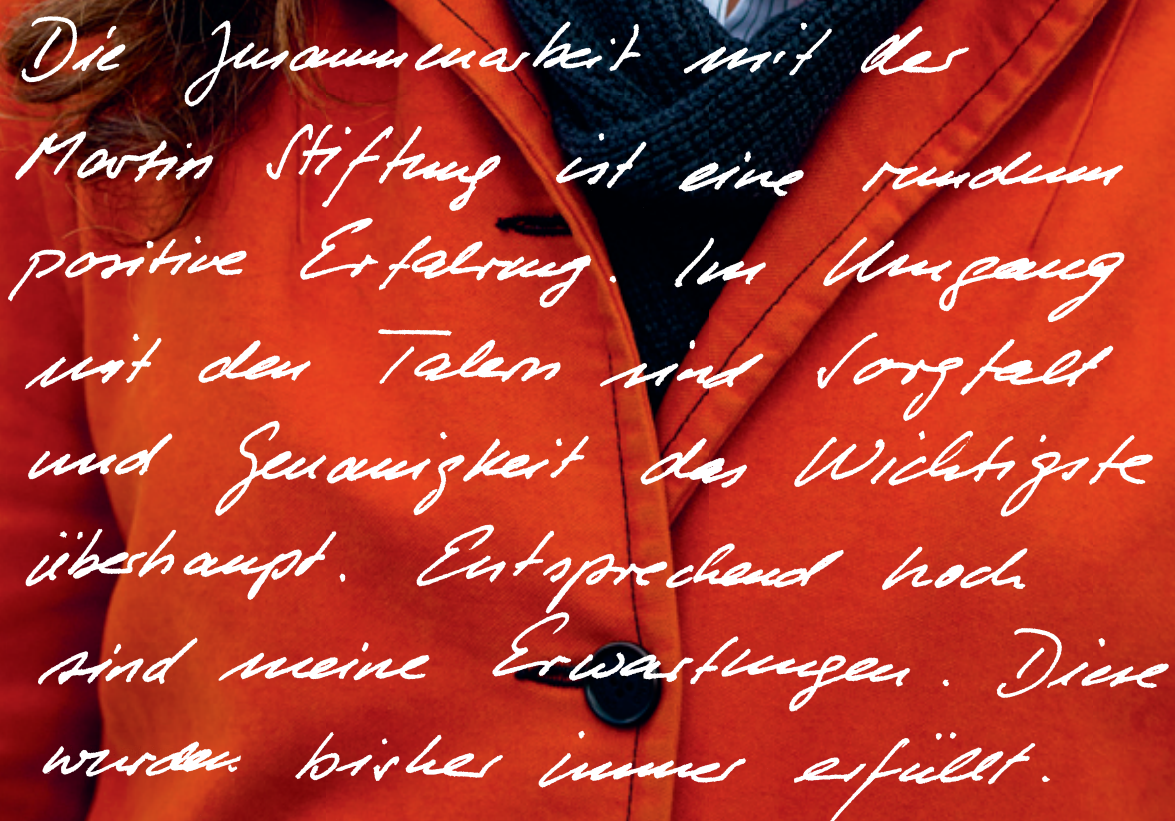 Die Zusammenarbeit mit der
Martin Stiftung ist eine rundum
positive Erfahrung. Im Umgang
mit den Talern sind Sorgfalt
und Genauigkeit das Wichtigste
überhaupt. Entsprechend hoch
sind meine Erwartungen. Diese
wurden bisher immer erfüllt.